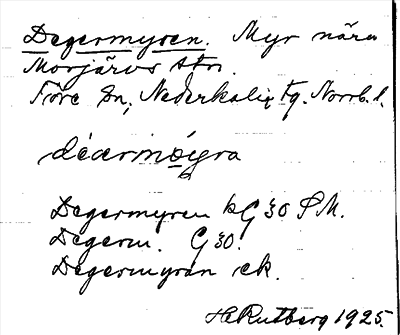 Degermyren. Myr nära
Morjärvs stn.
Töre Sn, Nederkalix tg. Norrb. l.
Degermyren kG 30 S M.
Degerm. G 30.
Degermyran ek.
H Rutberg 1925.